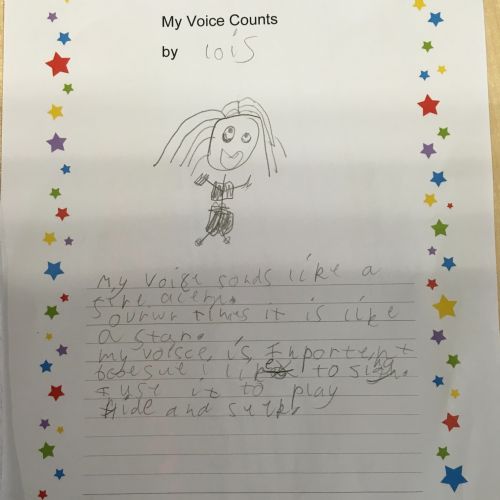 My Voice Counts
by lois
My voise sonds like a
fire alerm.
sourwr times it is like
a star.
my voisce is Inportent
becesue i like to sing.
I use it to play
Hide and seek.